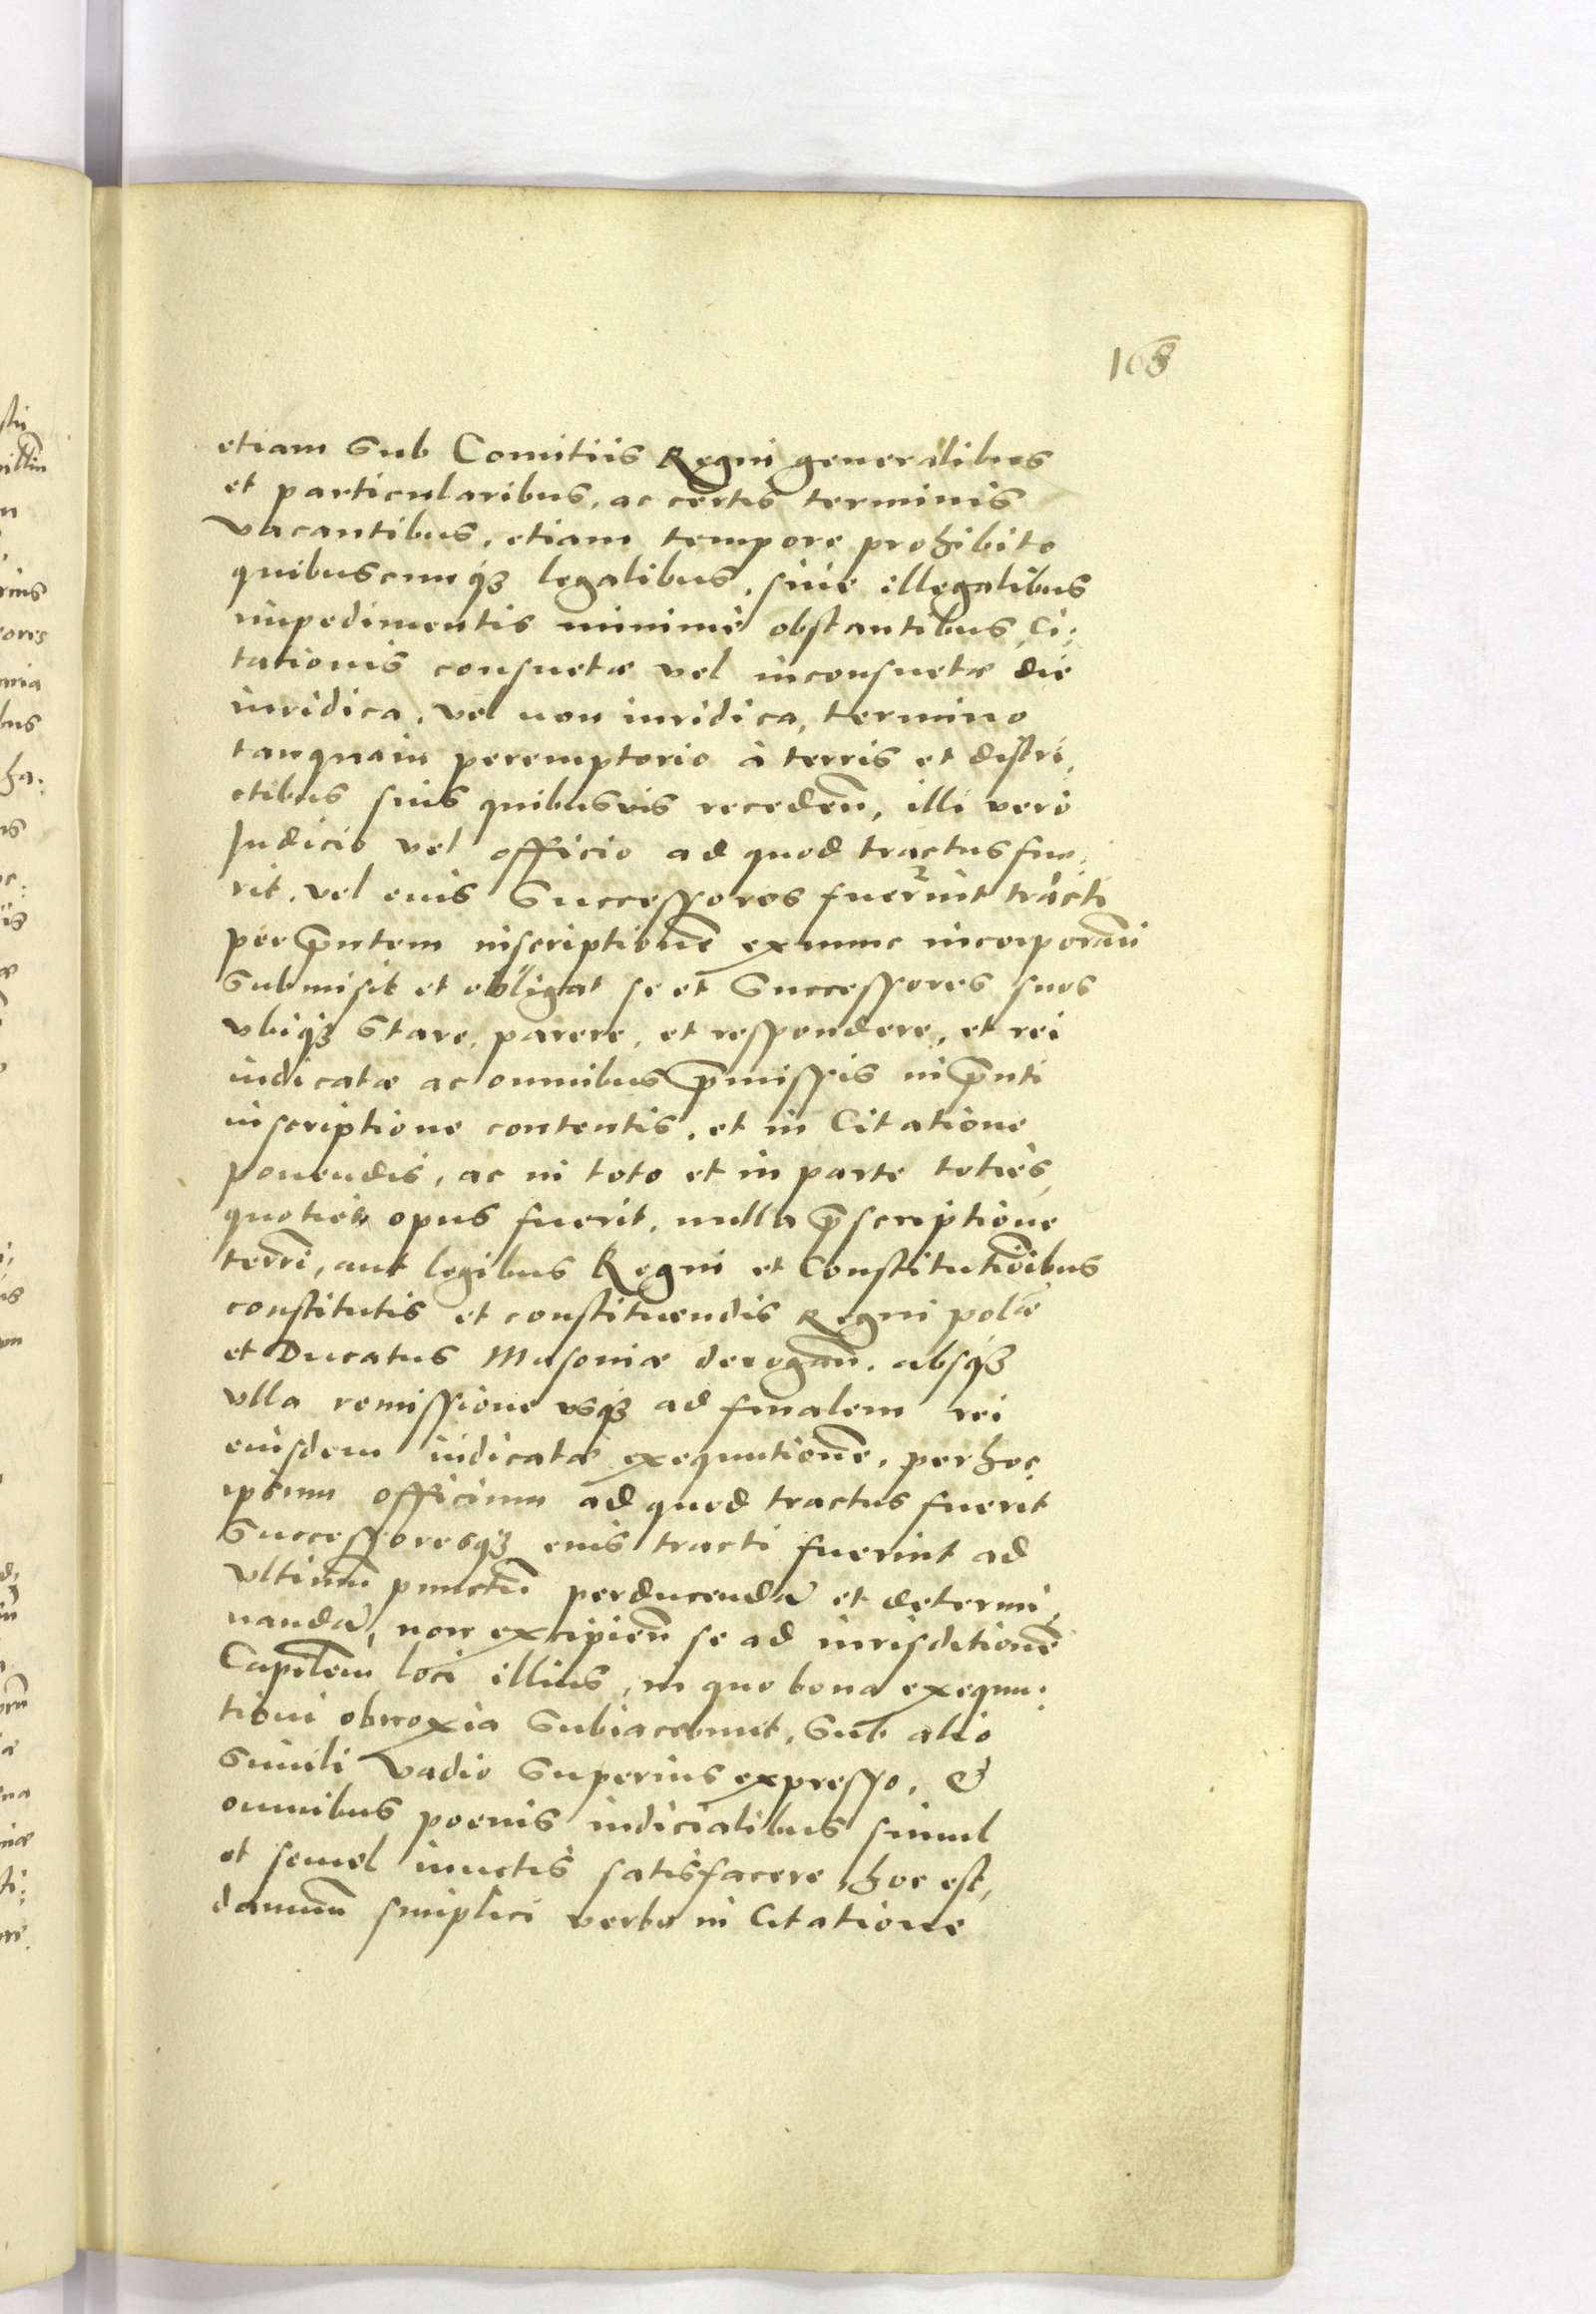 168
etiam sub Comitiis Regni generalibus
et particularibus, ac certis terminis
vacantibus, etiam tempore prohibito
quibuscunqꝫ legalibus, siue illegalibus
impedimentis minimè obstantibus, Ci:
tationis consuetæ vel inconsuetæ die
iuridica, vel non iuridica, termino
tanquam peremptorio à terris et distri,
ctibus suis quibusvis receden̄, illi verò
Judicio vel officio ad quod tractus fue,
rit, vel eius Successores fuerint tracti
per p̄ntem inscriptionē ex nunc incorporan̄
submisit et obligat se et Successores suos
vbiqꝫ stare, parere, et respondere, et rei
iudicatæ ac omnibus p̄missis in p̄nti
inscriptione contentis, et in Citatione
ponendis, ac in toto et in parte toties,
quoties opus fuerit, nulla p̄scriptione
terr̄i, aut legibus Regni et Constitutionībus
constitutis et constituendis Regni polæ
et Ducatus Masoniæ derogan̄, absqꝫ
vlla remissione vsqꝫ ad finalem rei
eiusdem iudicatæ exequutionē, per hoc
ipsum officium ad quod tractus fuerit
Successoresqꝫ eius tracti fuerint ad
vltimū punctū perducenda et determi,
nanda, non excipien̄ se ad iurisditionē
Capitlem loci illius, in quo bona exequu:
tioni obnoxia subiacebunt, sub alio
simili vadio superius expresso, &
omnibus poenis iudicialibus simul
et semel iunctis satisfacere, hoc est,
damnū simplici verbo in Citatione